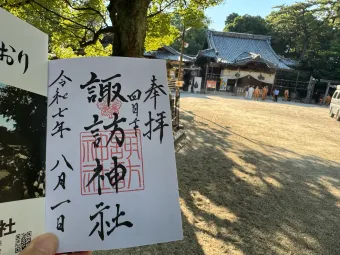 奉拝
四日市
諏訪神社
令和七年 八月一日
おり
社